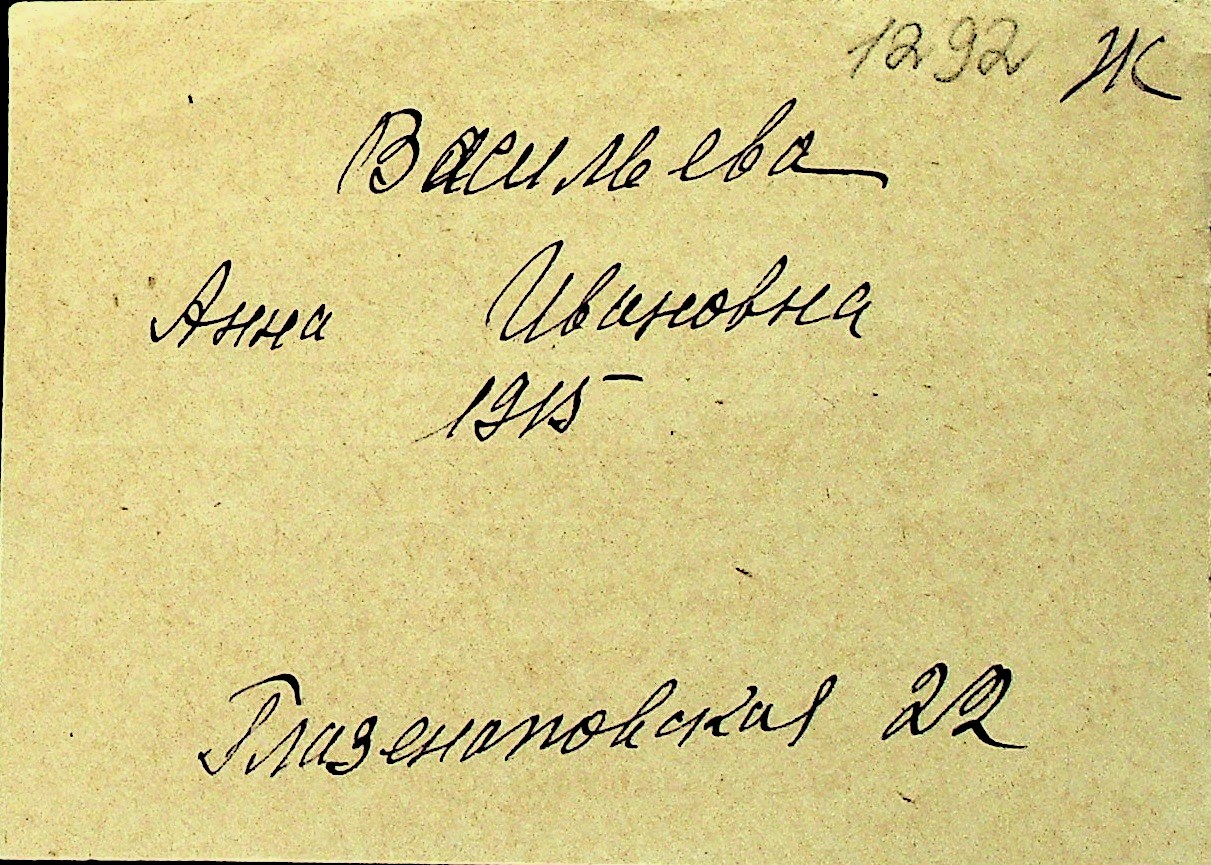 1292 Ж
Васильева
Анна Ивановна
1915
Глазенаповская 22